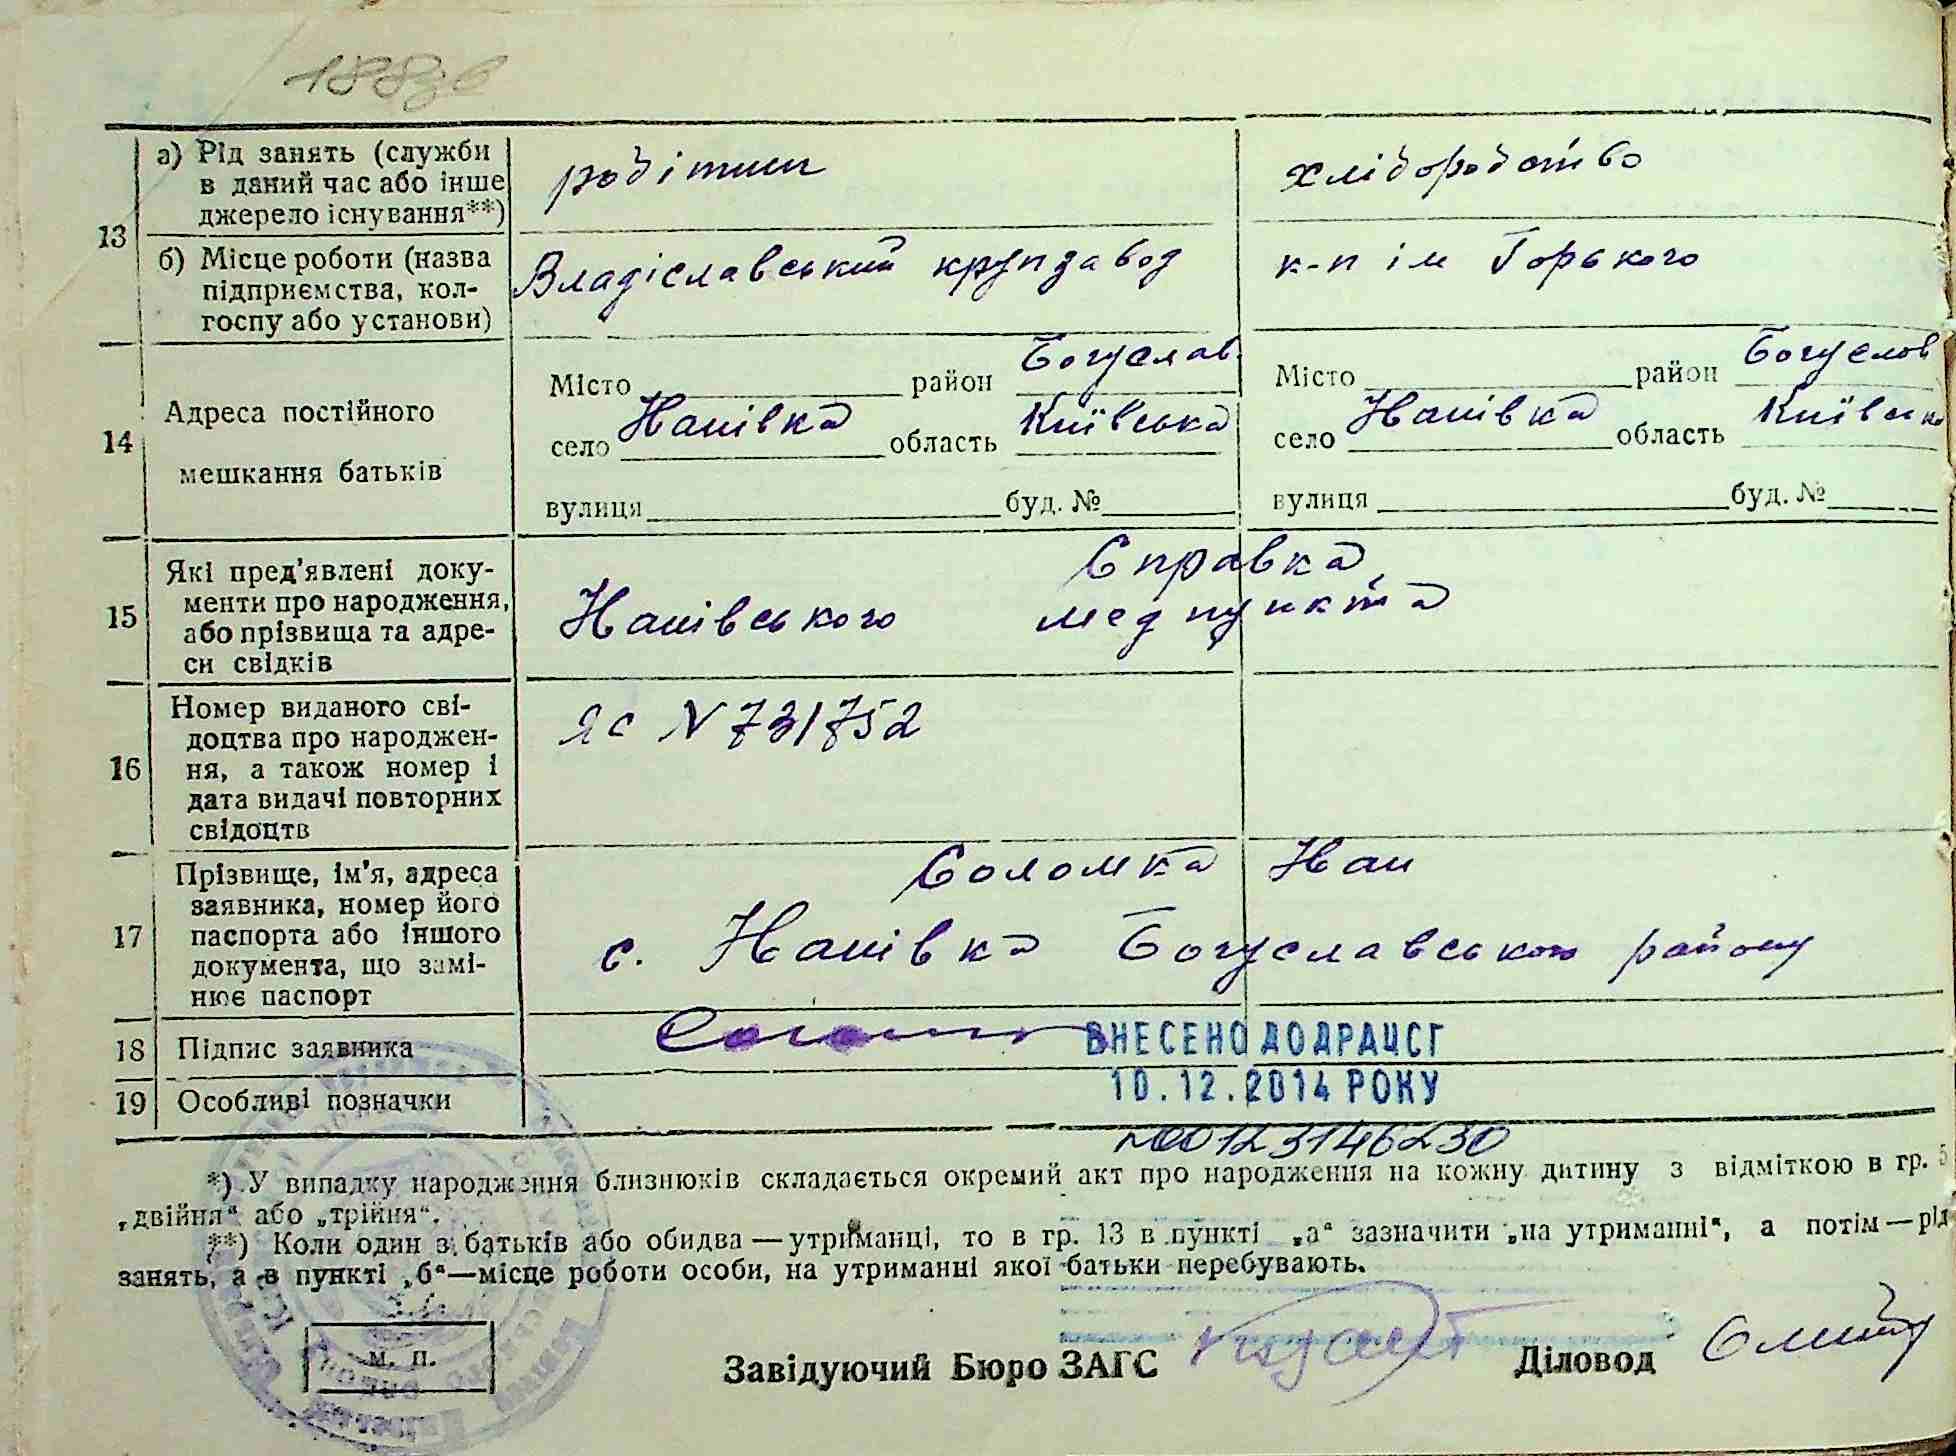 188зв
а) Рід занять (служби
в даний час або інше
джерело існування**)
робітник
хліборобство
13
б) Місце роботи (назва
підприємства, кол-
госпу або установи)
Владіславський крупзавод
к-п ім Горького
14
Адреса постійного
мешкання батьків
Місто район Богуслав.
село Ісаківка область Київська
вулиця буд. №
Місто район Богуслав
село Ісаківка область Київська
вулиця буд. №
15
Які пред'явлені доку-
менти про народження,
або прізвища та адре-
си свідків
Справка
медпункта
16
Номер виданого сві-
доцтва про народжен-
ня, а також номер і
дата видачі повторних
свідоцтв
ЯС N 731752
17
Прізвище, ім'я, адреса
заявника, номер його
паспорта або іншого
документа, що замі-
нює паспорт
Соломка Іван
с. Богуславського району
18 Підпис заявника
ВНЕСЕНО ДО ДРАЦСГ
19 Особливі позначки
10.12.2014 РОКУ
№00123146230
*) У випадку народження близнюків складається окремий акт про народження на кожну дитину з відміткою в гр. 5
„двійня“ або „трійня“.
**) Коли один з батьків або обидва — утриманці, то в гр. 13 в пункті „а“ зазначити „на утриманні“, а потім — рід
занять, а в пункті „б“ — місце роботи особи, на утриманні якої батьки перебувають.
М. П.
Завідуючий Бюро ЗАГС
Діловод